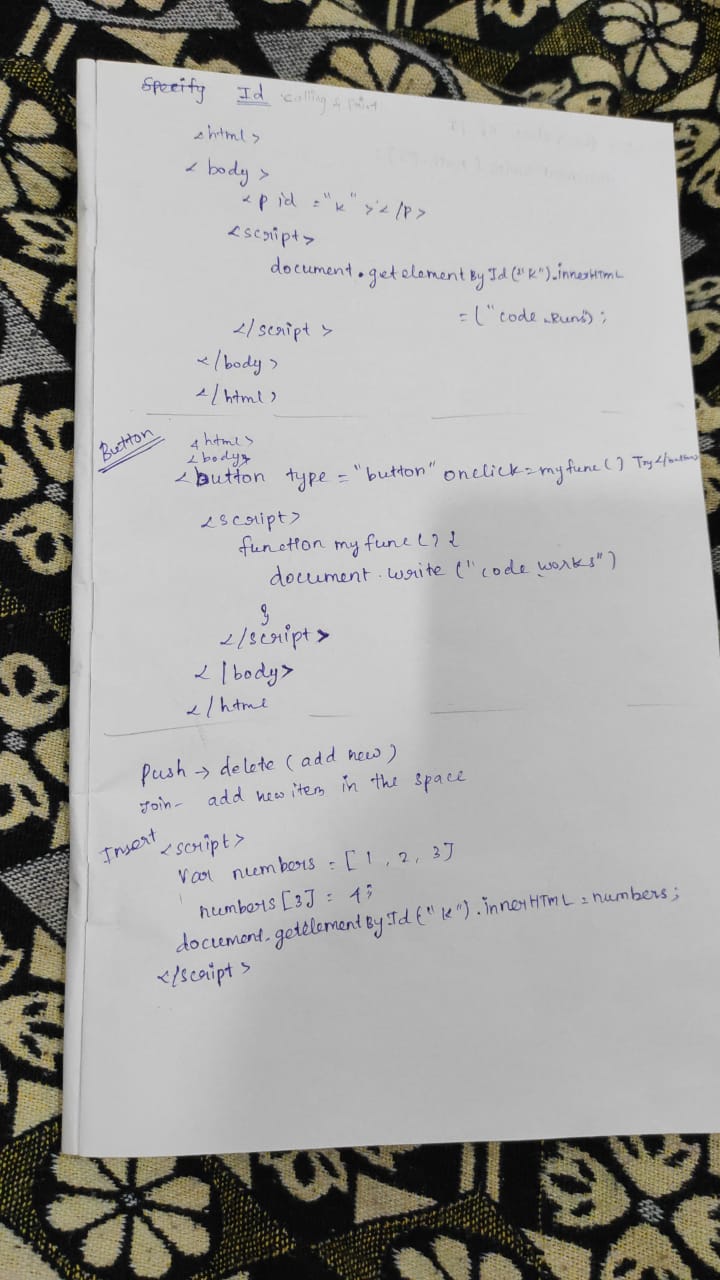 Specify Id calling & Print
<html>
<body>
<p id ="k"></p>
<script>
document.getelementById("k").innerHTML
= ("code Runs");
</script>
</body>
</html>
Button
<html>
<body>
<button type = "button" onclick=myfunc() Try </button>
<script>
function myfunc() {
document.write ("code works")
}
</script>
</body>
</html
Push → delete (add new)
Join - add new item in the space
Insert <script>
Var numbers = [1, 2, 3]
numbers [3] = 4;
document.getElementById("k").innerHTML = numbers;
</script>